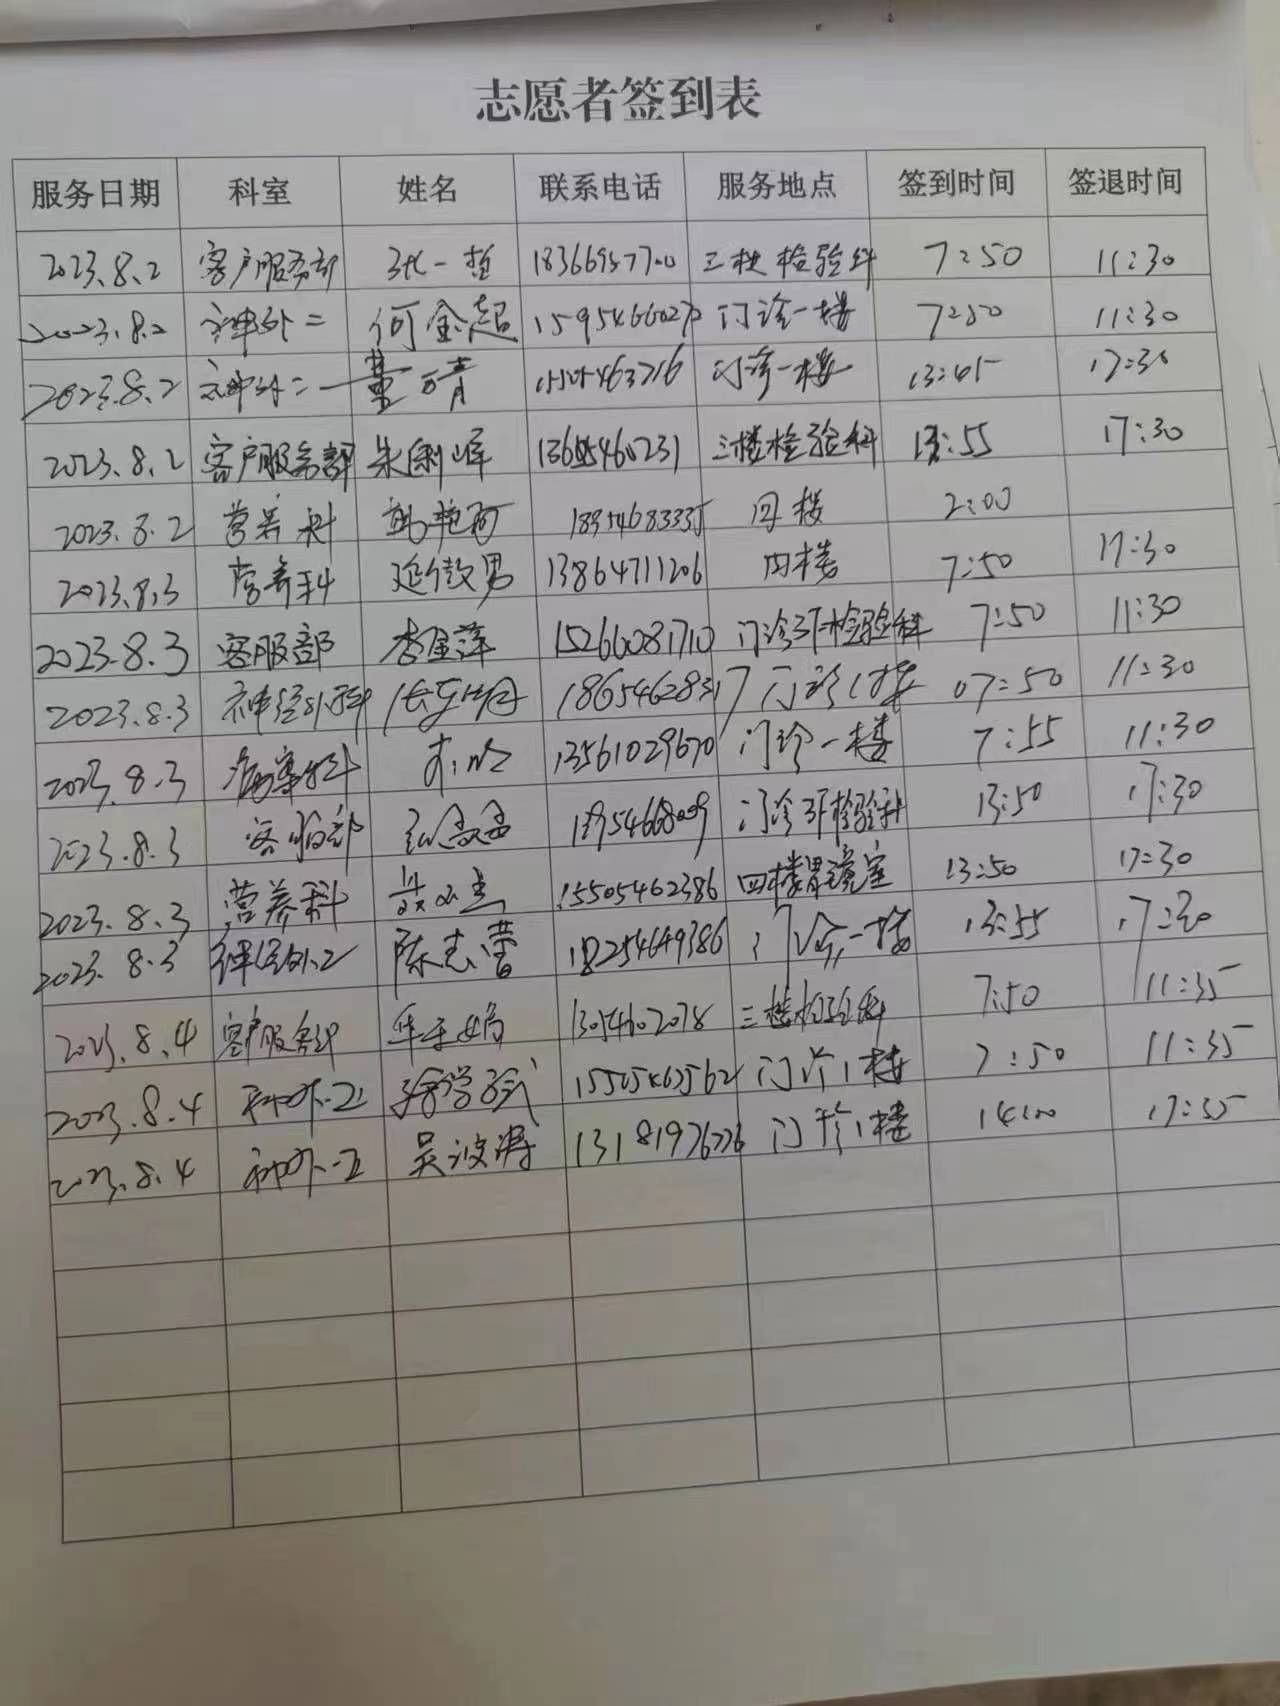 志愿者签到表
服务日期 科室 姓名 联系电话 服务地点 签到时间 签退时间
2023.8.2 客户服务部 一哲 18366957700 三楼检验科 7:50 11:30
2023.8.2 神外二 何金超 15954660270 门诊一楼 7:50 11:30
2023.8.2 神外二 董晴 15505463716 门诊一楼 13:45 17:30
2023.8.2 客户服务部 朱俐峰 13605460231 三楼检验科 13:55 17:30
2023.8.2 营养科 18954683335 四楼 2:00
2023.8.3 营养科 延微男 13864711206 四楼 7:50 17:30
2023.8.3 客服部 李金萍 15266081710 门诊3F检验科 7:50 11:30
2023.8.3 神经外科 门诊1楼 07:50 11:30
2023.8.3 13561029670 门诊一楼 7:55 11:30
2023.8.3 客服部 门诊3F检验科 13:50 17:30
2023.8.3 营养科 15505462386 四楼胃镜室 13:50 17:30
2023.8.3 神经外二 陈志蕾 18254649386 门诊一楼 13:55 17:30
2023.8.4 客户服务部 三楼检验科 7:50 11:35
2023.8.4 神外二 15505463562 门诊1楼 7:50 11:35
2023.8.4 神外二 吴波涛 13181976776 门诊1楼 14:00 17:35